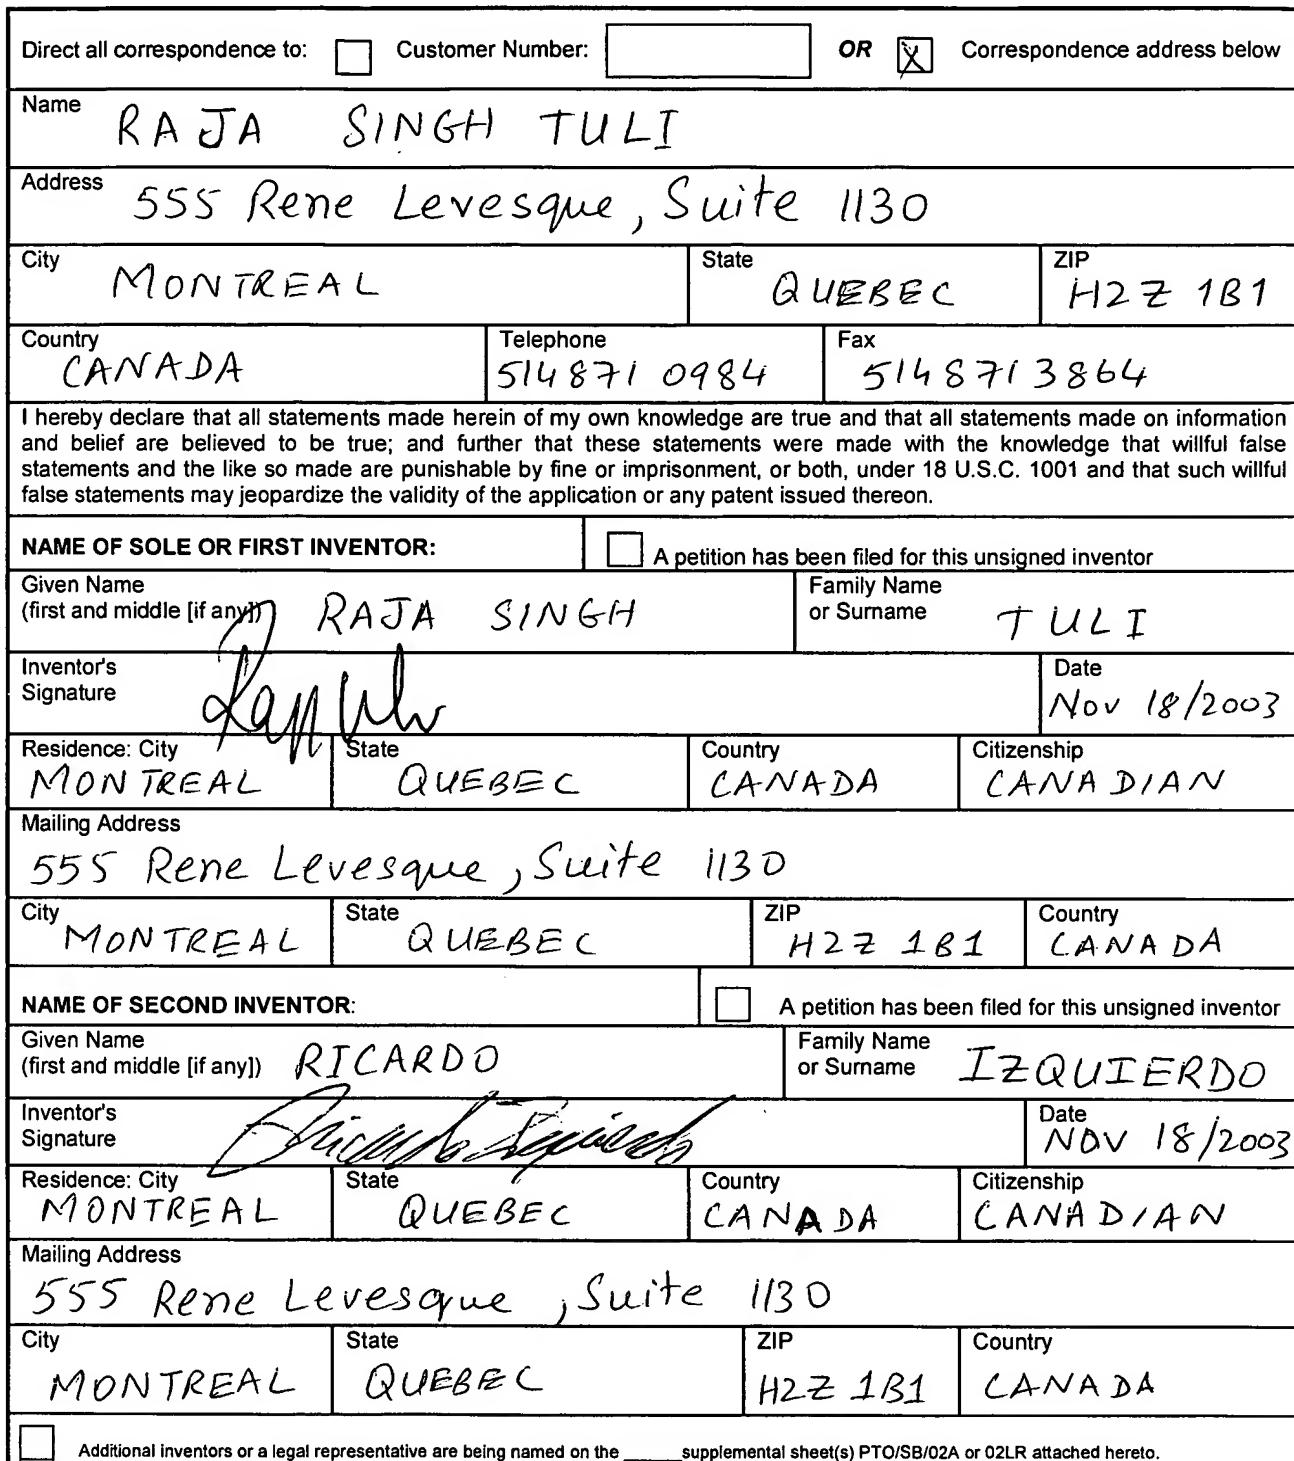 Direct all correspondence to: Customer Number: OR X Correspondence address below
Name RAJA SINGH TULI
Address 555 Rene Levesque, Suite 1130
City MONTREAL State QUEBEC ZIP H2Z 1B1
Country CANADA Telephone 514 871 0984 Fax 514 871 3864
I hereby declare that all statements made herein of my own knowledge are true and that all statements made on information
and belief are believed to be true; and further that these statements were made with the knowledge that willful false
statements and the like so made are punishable by fine or imprisonment, or both, under 18 U.S.C. 1001 and that such willful
false statements may jeopardize the validity of the application or any patent issued thereon.
NAME OF SOLE OR FIRST INVENTOR: A petition has been filed for this unsigned inventor
Given Name
(first and middle [if any]) RAJA SINGH
Family Name
or Surname TULI
Inventor's
Signature
Date
Nov 18/2003
Residence: City MONTREAL State QUEBEC Country CANADA Citizenship CANADIAN
Mailing Address
555 Rene Levesque, Suite 1130
City MONTREAL State QUEBEC ZIP H2Z 1B1 Country CANADA
NAME OF SECOND INVENTOR: A petition has been filed for this unsigned inventor
Given Name
(first and middle [if any]) RICARDO
Family Name
or Surname IZQUIERDO
Inventor's
Signature Ricardo Izquierdo
Date
NOV 18/2003
Residence: City MONTREAL State QUEBEC Country CANADA Citizenship CANADIAN
Mailing Address
555 Rene Levesque, Suite 1130
City MONTREAL State QUEBEC ZIP H2Z 1B1 Country CANADA
Additional inventors or a legal representative are being named on the ______supplemental sheet(s) PTO/SB/02A or 02LR attached hereto.